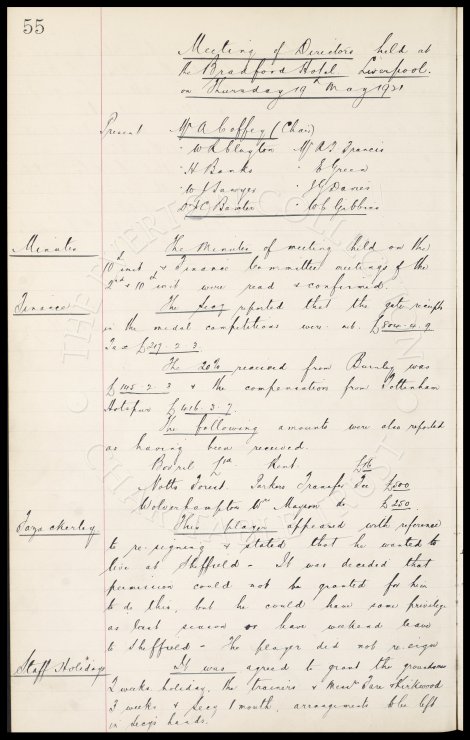 55
Meeting of Directors held at
the Bradford Hotel Liverpool.
on Thursday 19th May 1921
Present Mr A Coffey (Chair)
" W R Clayton Mr A T Francis
" H Banks " E Green
" W J Sawyer " J G Davies
Dr J C Baxter " W C Gibbins
Minutes The Minutes of meeting held on the
10th inst & Finance Committee meetings of the
2nd & 10th inst were read & confirmed.
Finance The Secy reported that the gate receipts
in the medal competitions were nb. £804.4.9
Tax £217.2.3.
The 20% received from Burnley was
£145.2.3 & the compensation from Tottenham
Hotspur £416.3.7.
The following amounts were also reported
as having been received.
Bovril Rent.
Notts Forest. Parkers Transfer Fee £500
Wolverhampton Wrs Mayson do £250
Fazackerley This player appeared with reference
to re-signing & stated that he wanted to
live at Sheffield - It was decided that
permission could not be granted for him
to do this, but he could have same privilege
as last season or have weekend leave
to Sheffield - The player did not re-sign
Staff Holidays It was agreed to grant the groundsmen
2 weeks holiday, the trainers & Messrs Fare & Kirkwood
3 weeks & Secy 1 month, arrangements to be left
in Secy's hands.